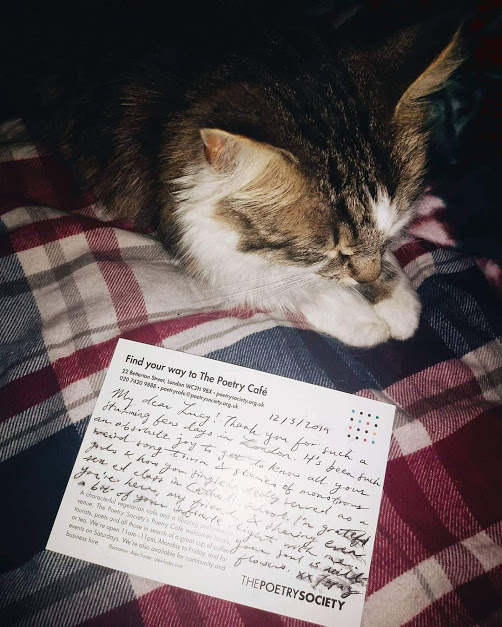 Find your way to The Poetry Café
22 Betterton Street, London WC2H 9BX • poetrysociety.org.uk
020 7420 9888 • poetrycafe@poetrysociety.org.uk
12/3/2019
My dear Lucy! Thank you for such a
stunning few days in London. It's been such
an absolute joy to get to know all your
weird song-trivia & stories of monstrous
& how you single-handedly served as a
sex ed class in Catholic school. I'm grateful
you're here, my friend, & sharing even
a bit of your infinite light with me.
Your soul is
flowers. xx
A characterful, vegetarian café and a
venue, The Poetry Society's Poetry Café welcomes
tourists, poets and all those in search of a great cup of coffee
or tea. We're open 11am–11pm, Monday to Friday, and for
events on Saturdays. We're also available for community and
business hire.
Illustration: Alex Foster, alexfoster.com
THEPOETRYSOCIETY